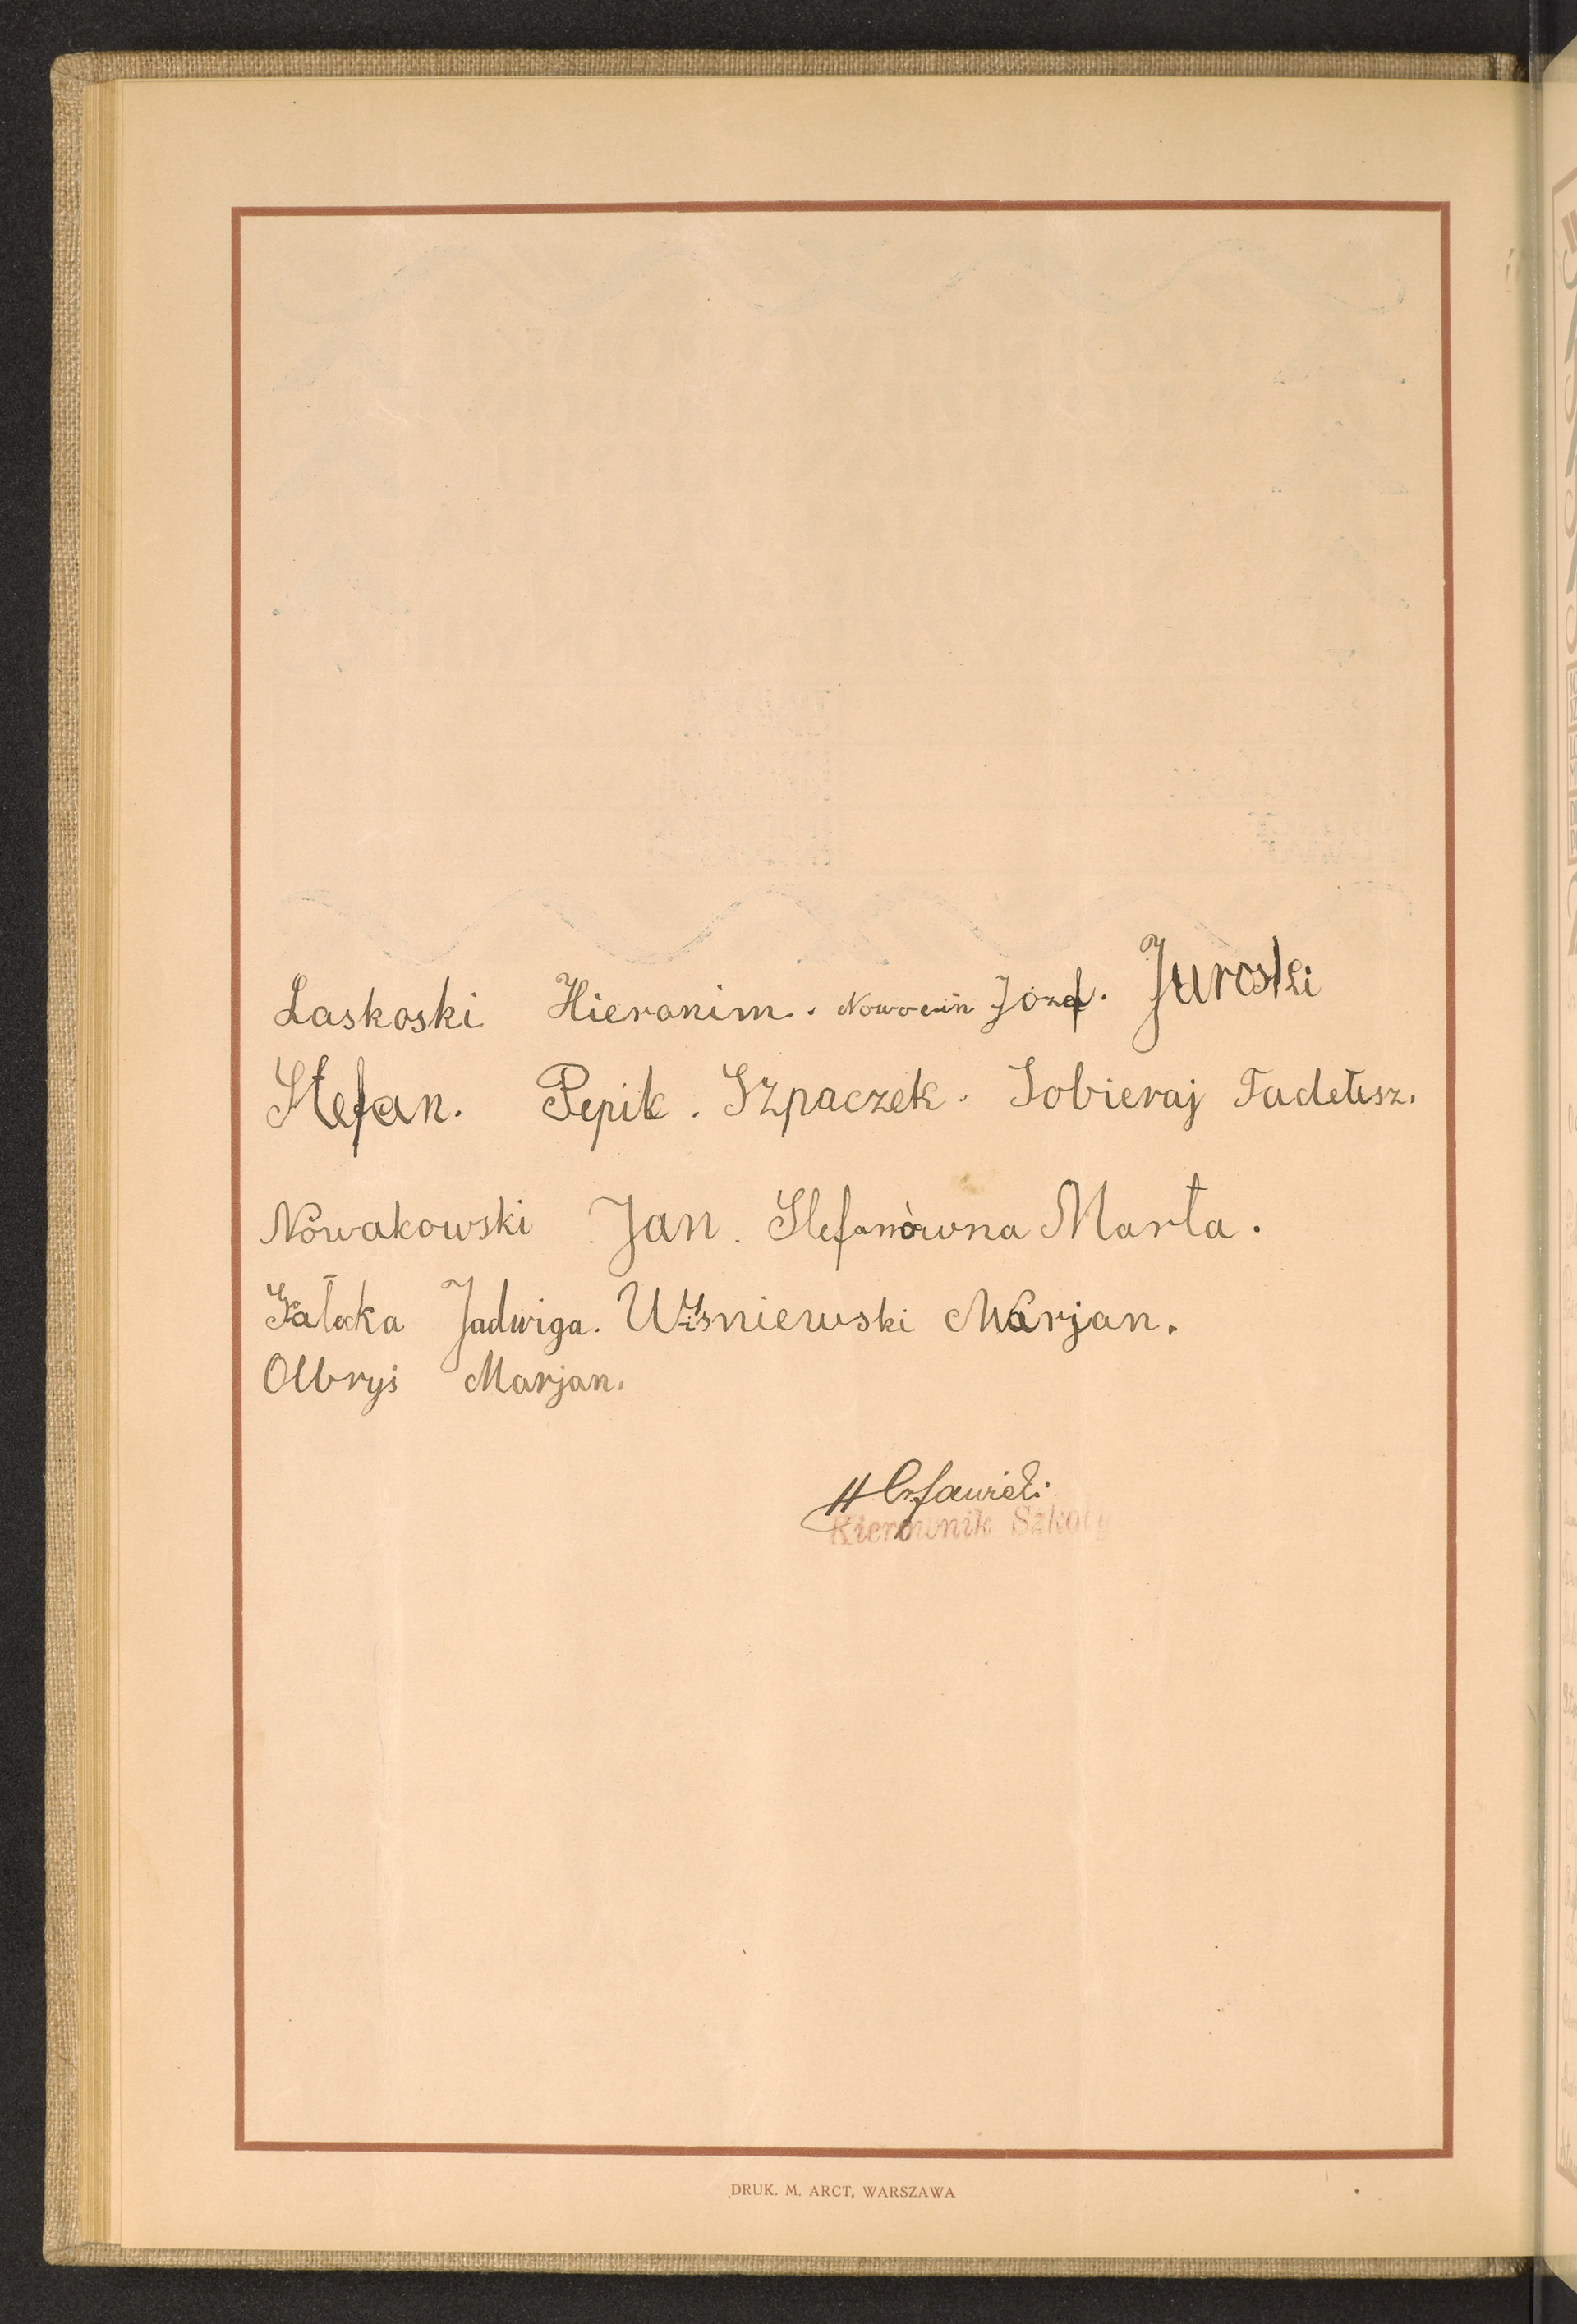 Laskoski Hieronim. Nowocin Józef. Juroski
Stefan. Pepik. Szpaczek. Sobieraj Tadeusz.
Nowakowski Jan. Stefanówna Marta.
Gałecka Jadwiga. Wiśniewski Marjan.
Olbryś Marjan.
Kierownik Szkoły
DRUK. M. ARCT, WARSZAWA